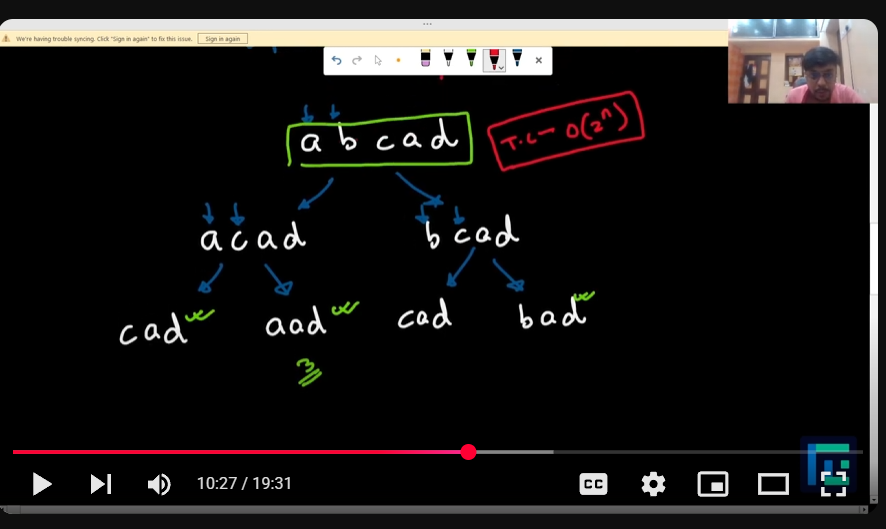 We're having trouble syncing. Click "Sign in again" to fix this issue. Sign in again
a b c a d
T.C - O(2^n)
a c a d
b c a d
c a d
a a d
c a d
b a d
3
10:27 / 19:31
CC